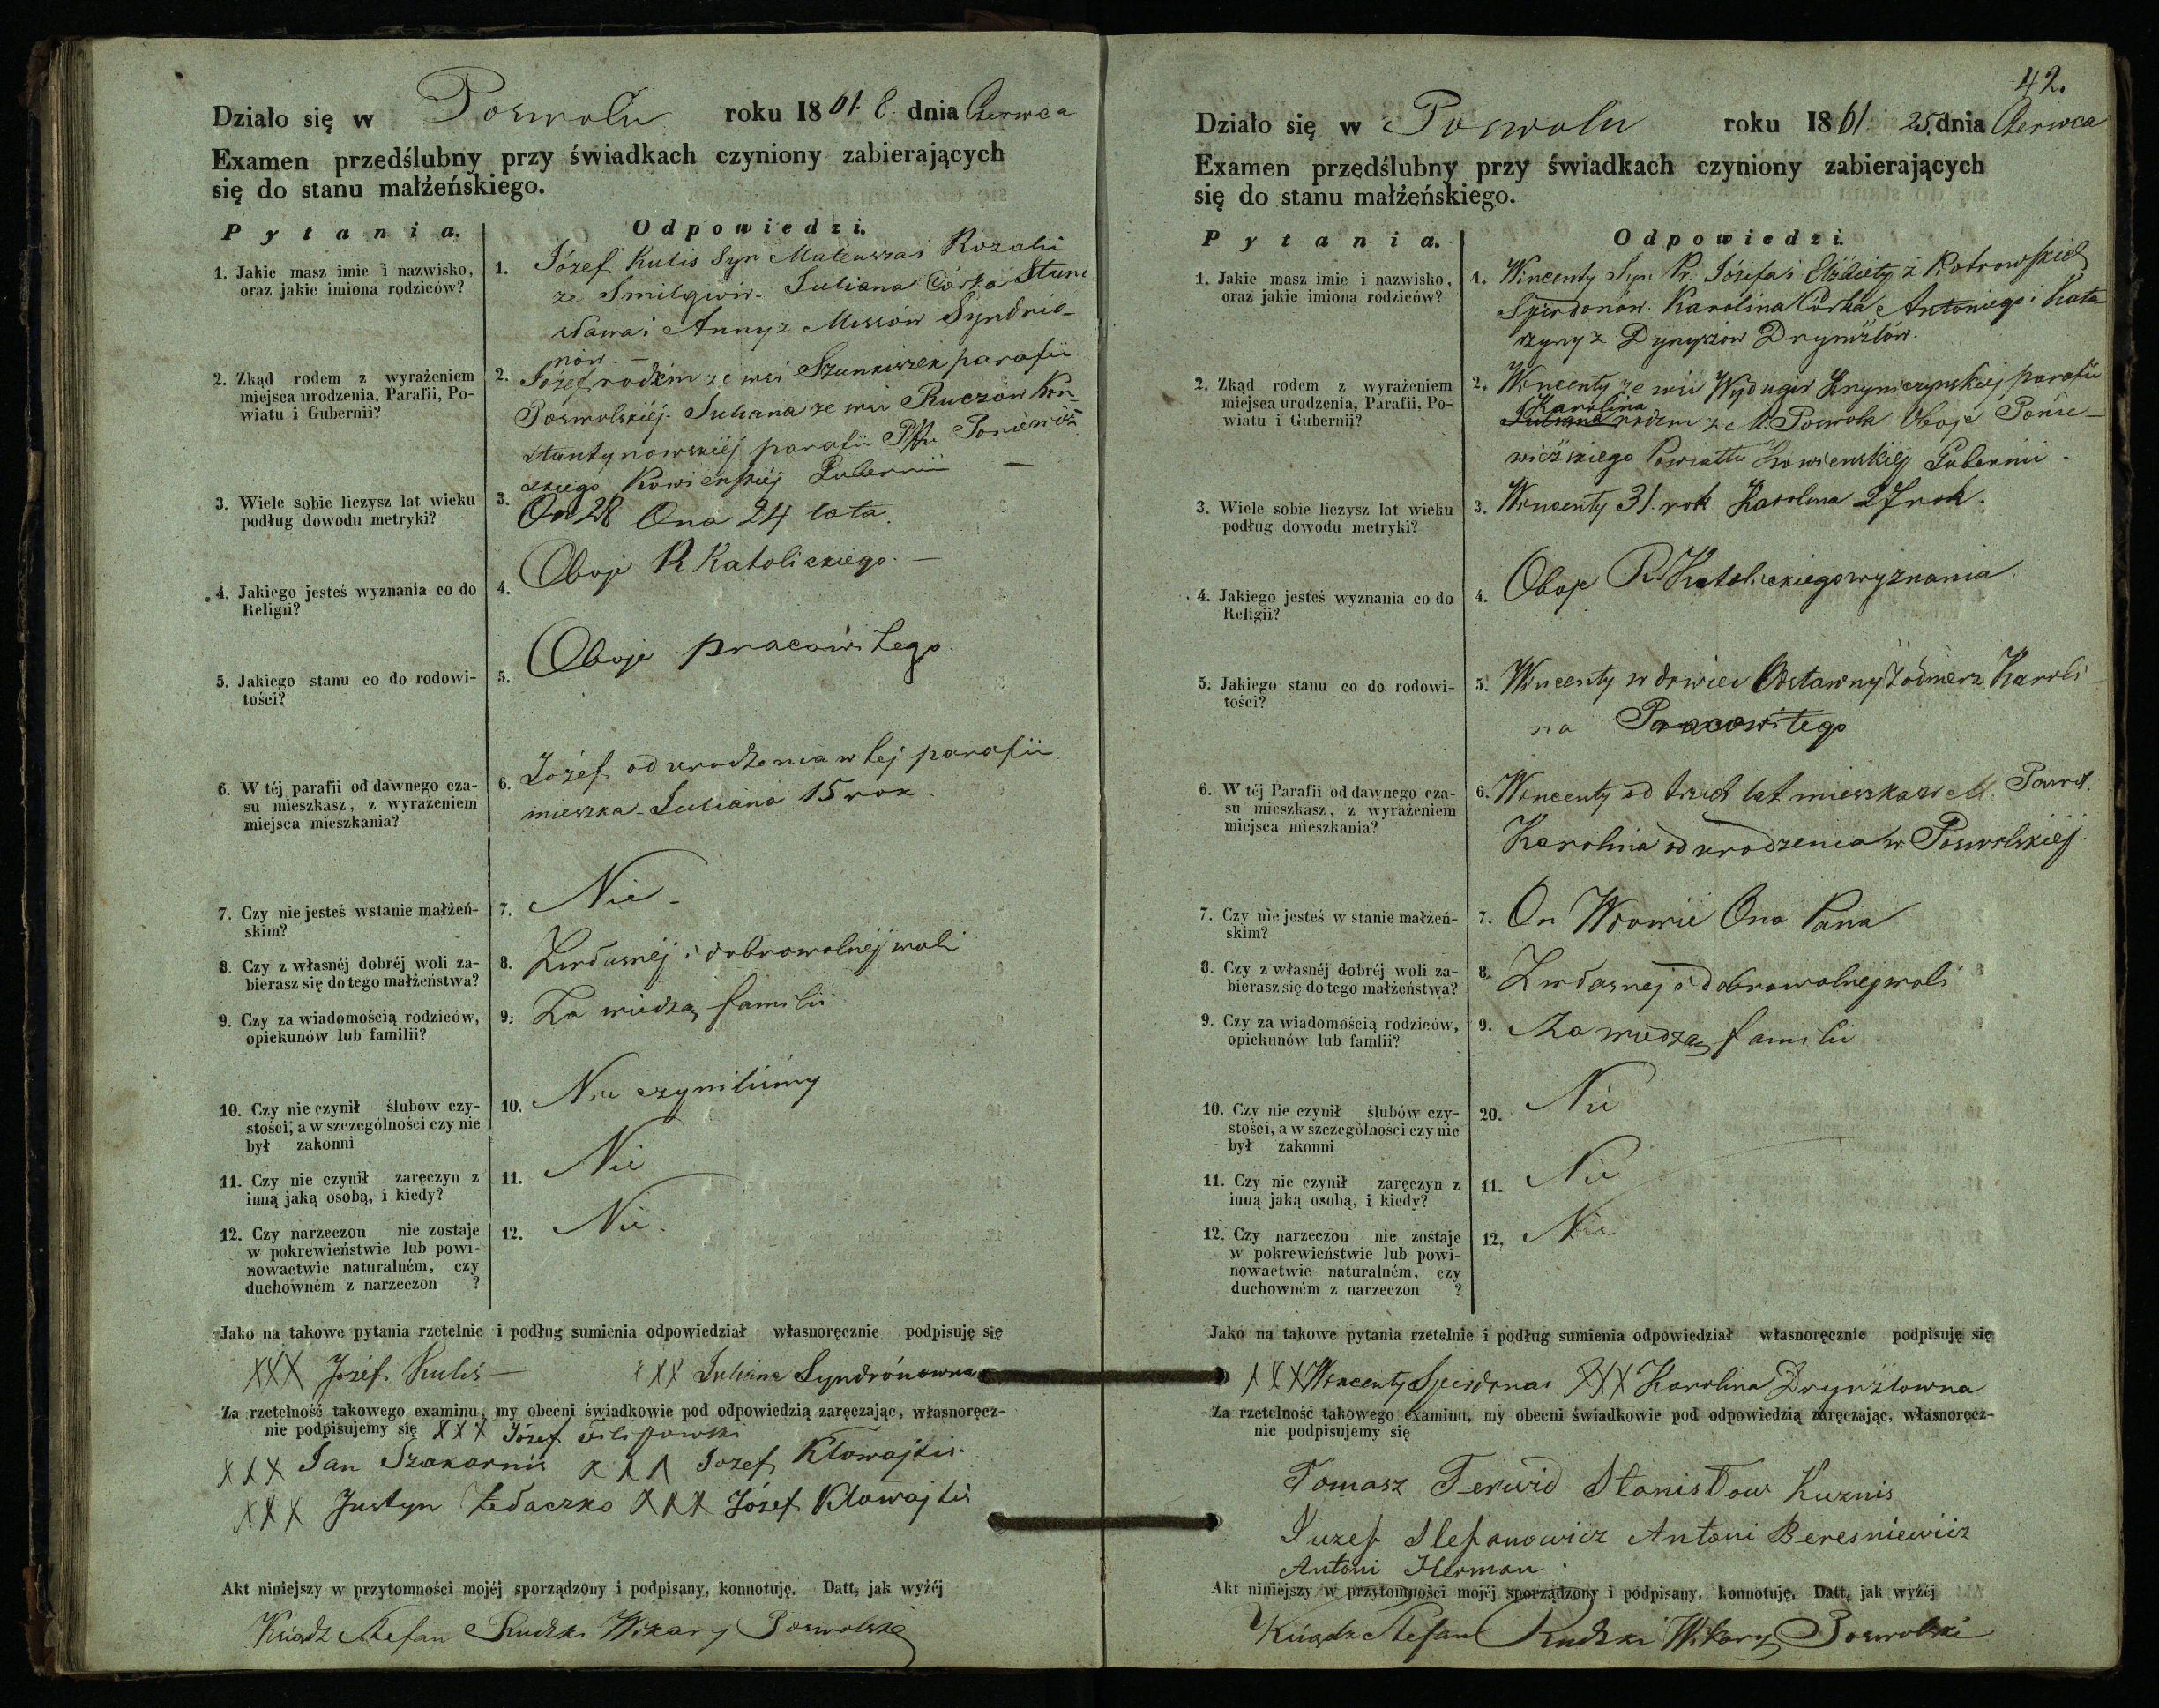 Działo się w Poswolu roku 1861. 8. dnia Czerwca
Examen przedślubny przy świadkach czyniony zabierających
się do stanu małżeńskiego.
Pytania. Odpowiedzi.
1. Jakie masz imie i nazwisko,
oraz jakie imiona rodziców?
1. Józef Kulis Syn Mateusza i Rozalii
ze Smilgiów. Juliana Córka Stani
sława i Anny z Missów Syndrio-
nów. —
2. Zkąd rodem z wyrażeniem
miejsca urodzenia, Parafii, Po-
wiatu i Gubernii?
2. Józef rodem ze wsi parafii
Poswolskiéj. Juliana ze wsi Ruczów Kon-
stantynowskiéj parafii Pttu Poniewież
skiego Kowieńskiéj Gubernii —
3. Wiele sobie liczysz lat wieku
podług dowodu metryki?
3. On 28 Ona 24 lata.
4. Jakiego jesteś wyznania co do
Religii?
4. Oboje R Katolickiego. —
5. Jakiego stanu co do rodowi-
tości?
5. Oboje pracowitego.
6. W téj parafii od dawnego cza-
su mieszkasz, z wyrażeniem
miejsca mieszkania?
6. Józef od urodzenia w tej parafii
mieszka. Juliana 15 rok.
7. Czy nie jesteś wstanie małżeń-
skim?
7. Nie —
8. Czy z własnéj dobréj woli za-
bierasz się do tego małżeństwa?
8. Z własnéj i dobrowolnéj woli
9. Czy za wiadomością rodziców,
opiekunów lub familii?
9. Za wiedzą familii
10. Czy nie czynił ślubów czy-
stości, a w szczególności czy nie
był zakonni
10. Nie czyniliśmy
11. Czy nie czynił zaręczyn z
inną jaką osobą, i kiedy?
11. Nie
12. Czy narzeczon nie zostaje
w pokrewieństwie lub powi-
nowactwie naturalném, czy
duchowném z narzeczon ?
12. Nie.
Jako na takowe pytania rzetelnie i podług sumienia odpowiedział własnoręcznie podpisuję się
XXX Józef Kulis — XXX Juliana Syndrónowna
Za rzetelność takowego examinu, my obecni świadkowie pod odpowiedzią zaręczając, własnoręcz-
nie podpisujemy się XXX Józef Filipowski
XXX Jan Szakarnis XXX Jozef Kłowajtis.
XXX Justyn Ledaczko XXX Józef Kłowajtis
Akt niniejszy w przytomności mojéj sporządzony i podpisany, konnotuję. Datt, jak wyżéj
Ksiądz Stefan Rudzki Wikary Poswolski
42.
Działo się w Poswolu roku 1861. 25. dnia Czerwca
Examen przedślubny przy świadkach czyniony zabierających
się do stanu małżeńskiego.
Pytania. Odpowiedzi.
1. Jakie masz imie i nazwisko,
oraz jakie imiona rodziców?
1. Wincenty Syn Pr. Józefa i Elżbiety z Piotrowskich
Spirdonów. Karolina Córka Antoniego i Kata
rzyny z Dynysów Drynżlów.
2. Zkąd rodem z wyrażeniem
miejsca urodzenia, Parafii, Po-
wiatu i Gubernii?
2. Wincenty ze wsi parafii
Karolina
Juliana rodem z M. Poswola Oboje Ponie-
wieżskiego Powiattu Kowienskiéj Gubernii.
3. Wiele sobie liczysz lat wieku
podług dowodu metryki?
3. Wincenty 31. rok Karolina 27 rok.
4. Jakiego jesteś wyznania co do
Religii?
4. Oboje R. Katolickiego wyznania.
5. Jakiego stanu co do rodowi-
tości?
5. Wincenty wdowiec Odstawny Żołnierz Karoli
na Pracowitego
6. W téj Parafii od dawnego cza-
su mieszkasz, z wyrażeniem
miejsca mieszkania?
6. Wincenty od trzech lat mieszka w M. Poswol.
Karolina od urodzenia w Poswolskiéj.
7. Czy nie jesteś w stanie małżeń-
skim?
7. On Wdowiec Ona Pana
8. Czy z własnéj dobréj woli za-
bierasz się do tego małżeństwa?
8. Z własnej i dobrowolnej woli
9. Czy za wiadomością rodziców,
opiekunów lub famlii?
9. Za wiedzą familii
10. Czy nie czynił ślubów czy-
stości, a w szczególności czy nie
był zakonni
20. Nie
11. Czy nie czynił zaręczyn z
inną jaką osobą, i kiedy?
11. Nie
12. Czy narzeczon nie zostaje
w pokrewieństwie lub powi-
nowactwie naturalném, czy
duchowném z narzeczon ?
12. Nie
Jako na takowe pytania rzetelnie i podług sumienia odpowiedział własnoręcznie podpisuję się
XXX Wincenty Spirdonas XXX Karolina Drynżlowna
Za rzetelność takowego examinu, my obecni świadkowie pod odpowiedzią zaręczając, własnoręcz-
nie podpisujemy się
Tomasz Terwid Stanisław Kuznis
Juzef Stefanowicz Antoni Beresniewicz
Antoni Herman.
Akt niniejszy w przytomności mojéj sporządzony i podpisany, konnotuję. Datt, jak wyżéj
Ksiądz Stefan Rudzki Wikary Poswolski